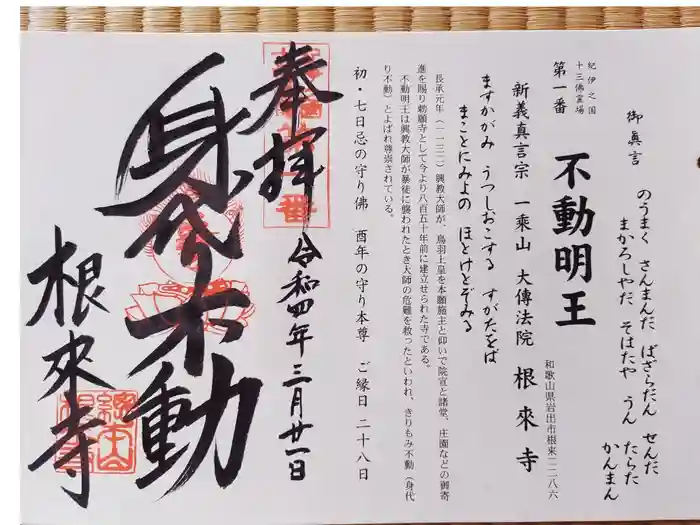 御真言
のうまく さんまんだ ばざらだん せんだ
まかろしやだ そはたや うん たらた
かんまん
紀伊之国
十三佛霊場
第一番
不動明王
和歌山県岩出市根来二二八六
新義真言宗 一乘山 大傳法院 根來寺
ますかがみ うつしおこする すがたをば
まことにみよの ほとけとぞみる
長承元年（一一三二）興教大師が、鳥羽上皇を本願施主と仰いで院宣と諸堂、庄園などの御寄
進を賜り勅願寺として今より八百五十年前に建立せられた寺である。
不動明王は興教大師が暴徒に襲われたとき大師の危難を救ったといわれ、きりもみ不動（身代
り不動）とよばれ尊崇されている。
初・七日忌の守り佛 酉年の守り本尊 ご縁日 二十八日
奉拝
令和四年三月廿一日
身代不動
根來寺